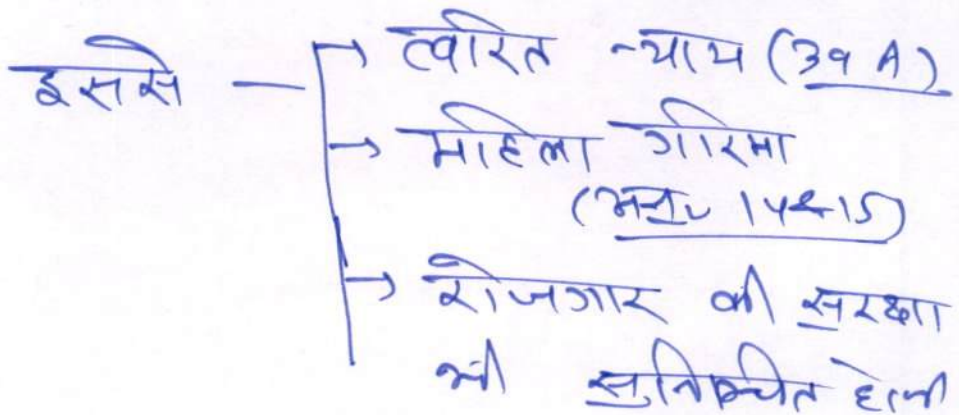 इससे — → त्वरित न्याय (39 A)
→ महिला गरिमा
(अनु० 14 & 15)
→ रोजगार की सुरक्षा
भी सुनिश्चित होगी